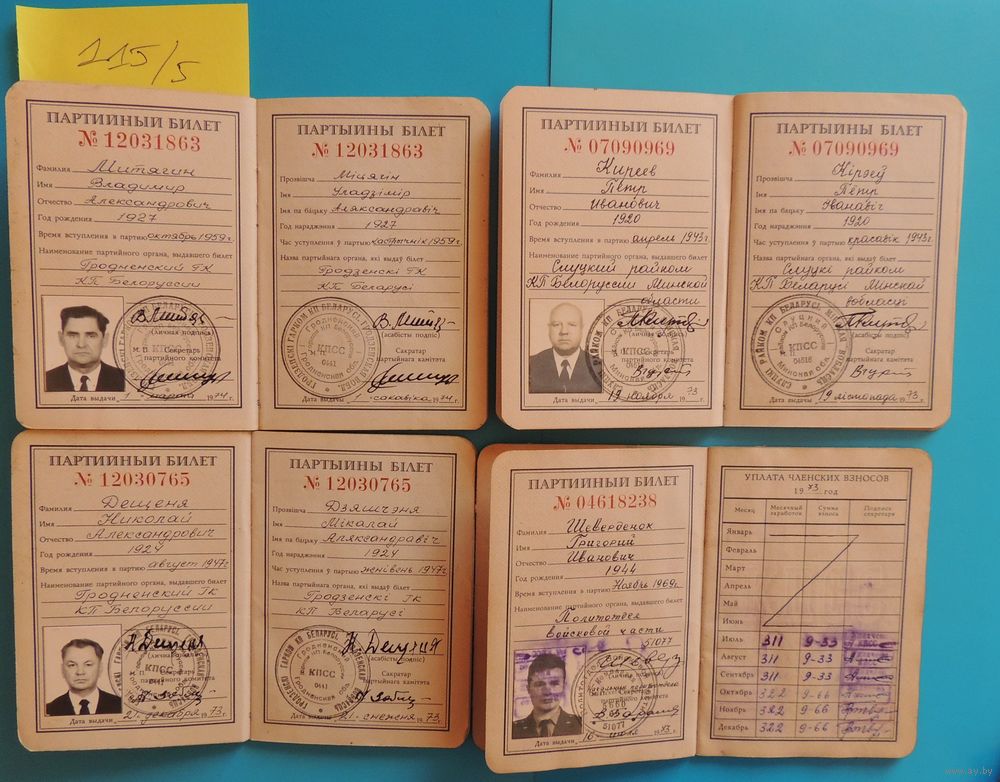 115/5
ПАРТИЙНЫЙ БИЛЕТ
№ 12031863
Фамилия Митягин
Имя Владимир
Отчество Александрович
Год рождения 1927
Время вступления в партию октябрь 1959 г.
Наименование партийного органа, выдавшего билет
Гродненский ГК
КП Белоруссии
(личная подпись)
М. П. Секретарь
партийного комитета
Дата выдачи 1 марта 1974 г.
ПАРТЫЙНЫ БІЛЕТ
№ 12031863
Прозвішча Міцягін
Імя Уладзімір
Імя па бацьку Аляксандравіч
Год нараджэння 1927
Час уступлення ў партыю кастрычнік 1959 г.
Назва партыйнага органа, які выдаў білет
Гродзенскі ГК
КП Беларусі
(асабісты подпіс)
Сакратар
партыйнага камітэта
Дата выдачы 1 сакавіка 1974 г.
ПАРТИЙНЫЙ БИЛЕТ
№ 07090969
Фамилия Киреев
Имя Пётр
Отчество Иванович
Год рождения 1920
Время вступления в партию апрель 1943 г.
Наименование партийного органа, выдавшего билет
Слуцкий райком
КП Белоруссии Минской
области
(личная подпись)
Секретарь
партийного комитета
Дата выдачи 19 ноября 1973 г.
ПАРТЫЙНЫ БІЛЕТ
№ 07090969
Прозвішча Кірэеў
Імя Пётр
Імя па бацьку Іванавіч
Год нараджэння 1920
Час уступлення ў партыю красавік 1943 г.
Назва партыйнага органа, які выдаў білет
Слуцкі райком
КП Беларусі Мінскай
вобласці
(асабісты подпіс)
Сакратар
партыйнага камітэта
Дата выдачы 19 лістапада 1973 г.
ПАРТИЙНЫЙ БИЛЕТ
№ 12030765
Фамилия Дещеня
Имя Николай
Отчество Александрович
Год рождения 1924
Время вступления в партию август 1947 г.
Наименование партийного органа, выдавшего билет
Гродненский ГК
КП Белоруссии
(личная подпись)
М. П. Секретарь
партийного комитета
Дата выдачи 21 декабря 1973 г.
ПАРТЫЙНЫ БІЛЕТ
№ 12030765
Прозвішча Дзяшчэня
Імя Мікалай
Імя па бацьку Аляксандравіч
Год нараджэння 1924
Час уступлення ў партыю жнівень 1947 г.
Назва партыйнага органа, які выдаў білет
Гродзенскі ГК
КП Беларусі
(асабісты подпіс)
Сакратар
партыйнага камітэта
Дата выдачы 21 снежня 1973 г.
ПАРТИЙНЫЙ БИЛЕТ
№ 04618238
Фамилия Шевердёнок
Имя Григорий
Отчество Иванович
Год рождения 1944
Время вступления в партию Ноябрь 1969 г.
Наименование партийного органа, выдавшего билет
Политотдел
войсковой части
51077
Дата выдачи 16 июля 1973 г.
УПЛАТА ЧЛЕНСКИХ ВЗНОСОВ
1973 год
Месяц Месячный заработок Сумма взноса Подпись секретаря
Январь
Февраль
Март
Апрель
Май
Июнь
Июль 311 9-33
Август 311 9-33
Сентябрь 311 9-33
Октябрь 322 9-66
Ноябрь 322 9-66
Декабрь 322 9-66
www.ay.by